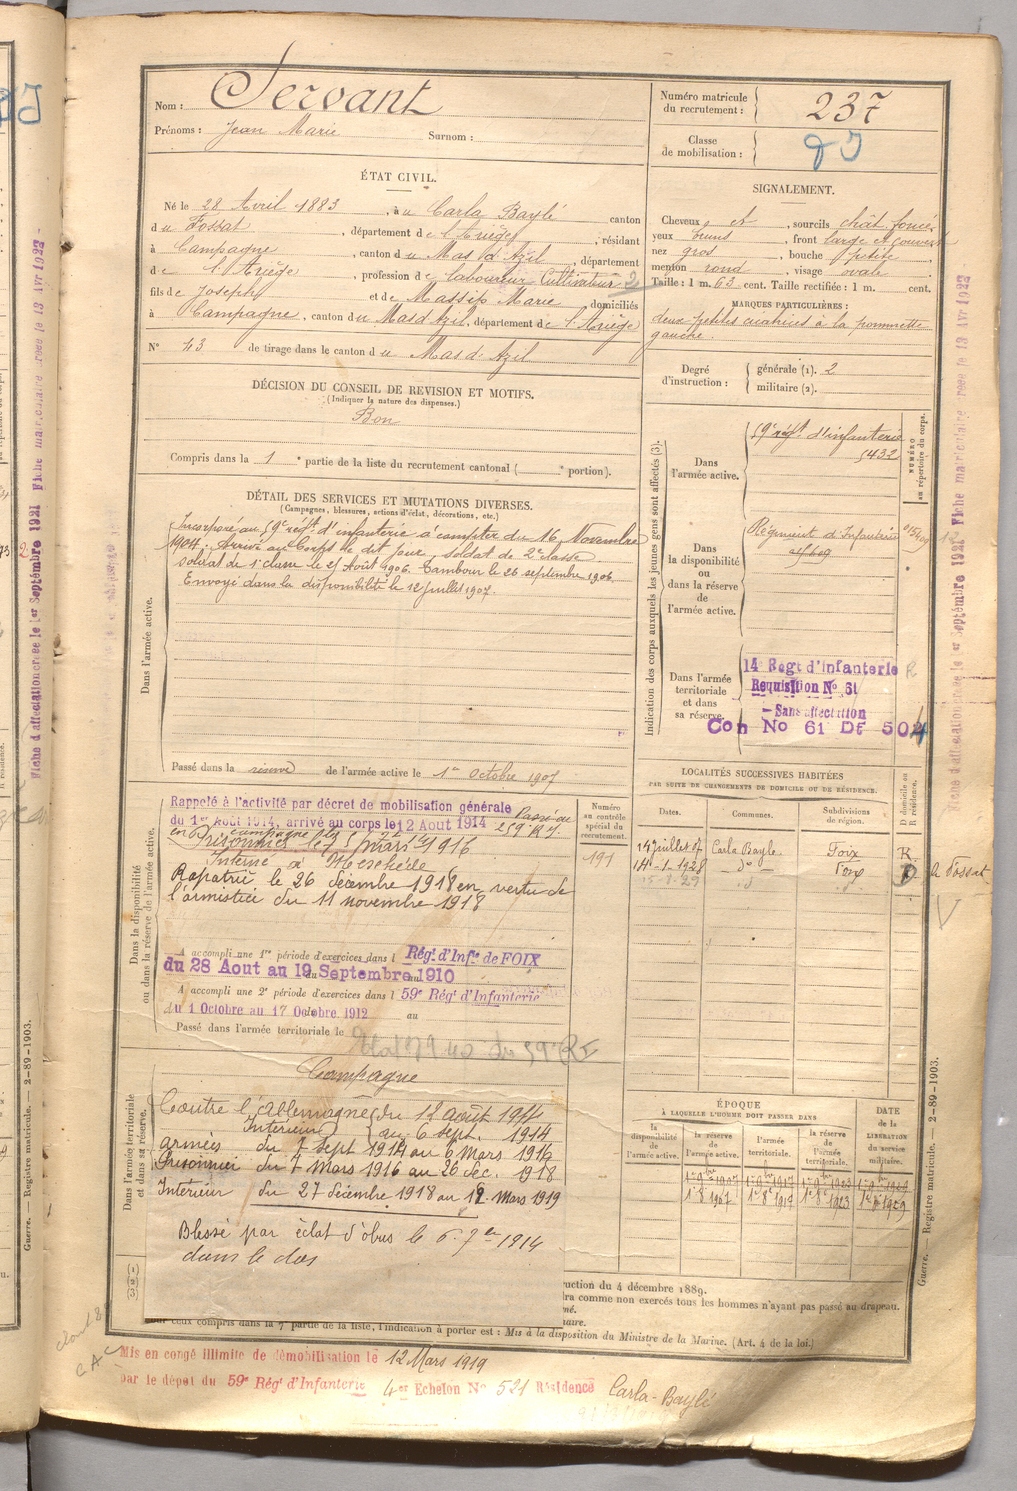 Nom : Servant
Prénoms : Jean Marie Surnom :
Numéro matricule du recrutement : 237
Classe de mobilisation :
ÉTAT CIVIL.
Né le 28 Avril 1883, à u Carla Baylé canton
d u Fossat, département de l'Ariège, résidant
à Campagne, canton du Mas d'Azil, département
de l'Ariège, profession de laboureur Cultivateur 2
fils de Joseph et de Massip Marie domiciliés
à Campagne, canton du Mas d'Azil, département de l'Ariège
N° 43 de tirage dans le canton d u Mas d'Azil
SIGNALEMENT.
Cheveux et, sourcils chât. foncé,
yeux bruns, front large et couvert
nez gros, bouche petite,
menton rond, visage ovale
Taille : 1 m. 63 cent. Taille rectifiée : 1 m. cent.
MARQUES PARTICULIÈRES :
deux petites cicatrices à la pommette
gauche.
Degré d'instruction : générale (1). 2
militaire (2).
DÉCISION DU CONSEIL DE REVISION ET MOTIFS.
(Indiquer la nature des dispenses.)
Bon
Compris dans la 1e partie de la liste du recrutement cantonal ( e portion).
DÉTAIL DES SERVICES ET MUTATIONS DIVERSES.
(Campagnes, blessures, actions d'éclat, décorations, etc.)
Dans l'armée active.
Incorporé au 59e régt. d'infanterie à compter du 16 Novembre
1904. Arrivé au Corps le dit jour, soldat de 2e classe
soldat de 1e classe le 21 Août 1906. Tambour le 26 septembre 1906.
Envoyé dans la disponibilité le 12 juillet 1907.
Passé dans la réserve de l'armée active le 1er Octobre 1907
Indication des corps auxquels les jeunes gens sont affectés (3).
NUMÉRO au répertoire du corps.
Dans l'armée active.
59e régt d'infanterie
5432
Dans la disponibilité ou dans la réserve de l'armée active.
Régiment d'Infanterie
Dans l'armée territoriale et dans sa réserve.
14e Regt d'infanterie
Requisition No 61
- Sans affectation
Con No 61 Df 504
Dans la disponibilité ou dans la réserve de l'armée active.
Rappelé à l'activité par décret de mobilisation générale
du 1er Août 1914, arrivé au corps le 12 Aout 1914 Passé au
259e R.I.
Prisonnier le 7 mars 1916
Interné à Meschede
Rapatrié le 26 décembre 1918 en vertu de
l'armistice du 11 novembre 1918
Numéro au contrôle spécial du recrutement.
191
A accompli une 1re période d'exercices dans l Régt. d'Infie de FOIX
du 28 Aout au 19 Septembre 1910
A accompli une 2e période d'exercices dans l 59e Régt d'Infanterie
du 1 Octobre au 17 Octobre 1912 au
Passé dans l'armée territoriale le
LOCALITÉS SUCCESSIVES HABITÉES
PAR SUITE DE CHANGEMENTS DE DOMICILE OU DE RÉSIDENCE.
Dates. Communes. Subdivisions de région. D domicile ou R résidence.
14 juillet 07 Carla Bayle Foix R
14-1-1928 do Foix D A Fossat
15-8-29 do
Dans l'armée territoriale et dans sa réserve.
Campagne
Contre l'Allemagne du 12 août 1914
Intérieur au 6 sept. 1914
armées du 7 Sept 1914 au 6 Mars 1916
Prisonnier du 7 Mars 1916 au 26 déc. 1918
Intérieur du 27 décembre 1918 au 12 Mars 1919
Blessé par éclat d'obus le 6. 7bre 1914
dans le dos
ÉPOQUE
À LAQUELLE L'HOMME DOIT PASSER DANS
DATE de la LIBÉRATION du service militaire.
la disponibilité de l'armée active. la réserve de l'armée active. l'armée territoriale. la réserve de l'armée territoriale.
1er 8bre 1907 1er 8bre 1917 1er 8bre 1923 1er 8bre 1929
(1)
(2)
(3)
ruction du 4 décembre 1889.
dra comme non exercés tous les hommes n'ayant pas passé au drapeau.
mé.
naire.
our ceux compris dans la 7e partie de la liste, l'indication à porter est : Mis à la disposition du Ministre de la Marine. (Art. 4 de la loi.)
Mis en congé illimité de démobilisation le 12 Mars 1919
par le dépot du 59e Régt d'Infanterie 4er Echelon No 521 Résidence Carla-Baylé
Guerre. — Registre matricule. — 2-89-1903.
Guerre. — Registre matricule. — 2-89-1903.
Fiche d'affectation créée le 1er Septembre 1921 Fiche matriculaire créée le 13 Avr 1922
Fiche d'affectation créée le 1er Septembre 1921 Fiche matriculaire créée le 13 Avr 1922